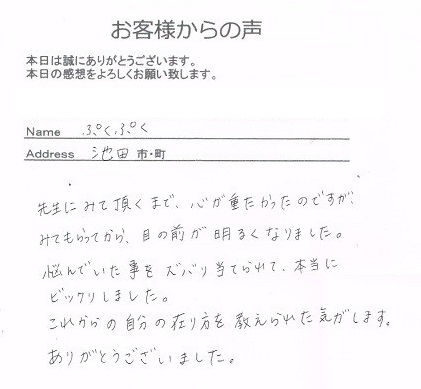 お客様からの声
本日は誠にありがとうございます。
本日の感想をよろしくお願い致します。
Name ぷくぷく
Address 池田 市・町
先生にみて頂くまで、心が重たかったのですが、
みてもらってから、目の前が明るくなりました。
悩んでいた事をズバリ当てられて、本当に
ビックリしました。
これからの自分の在り方を教えられた気がします。
ありがとうございました。